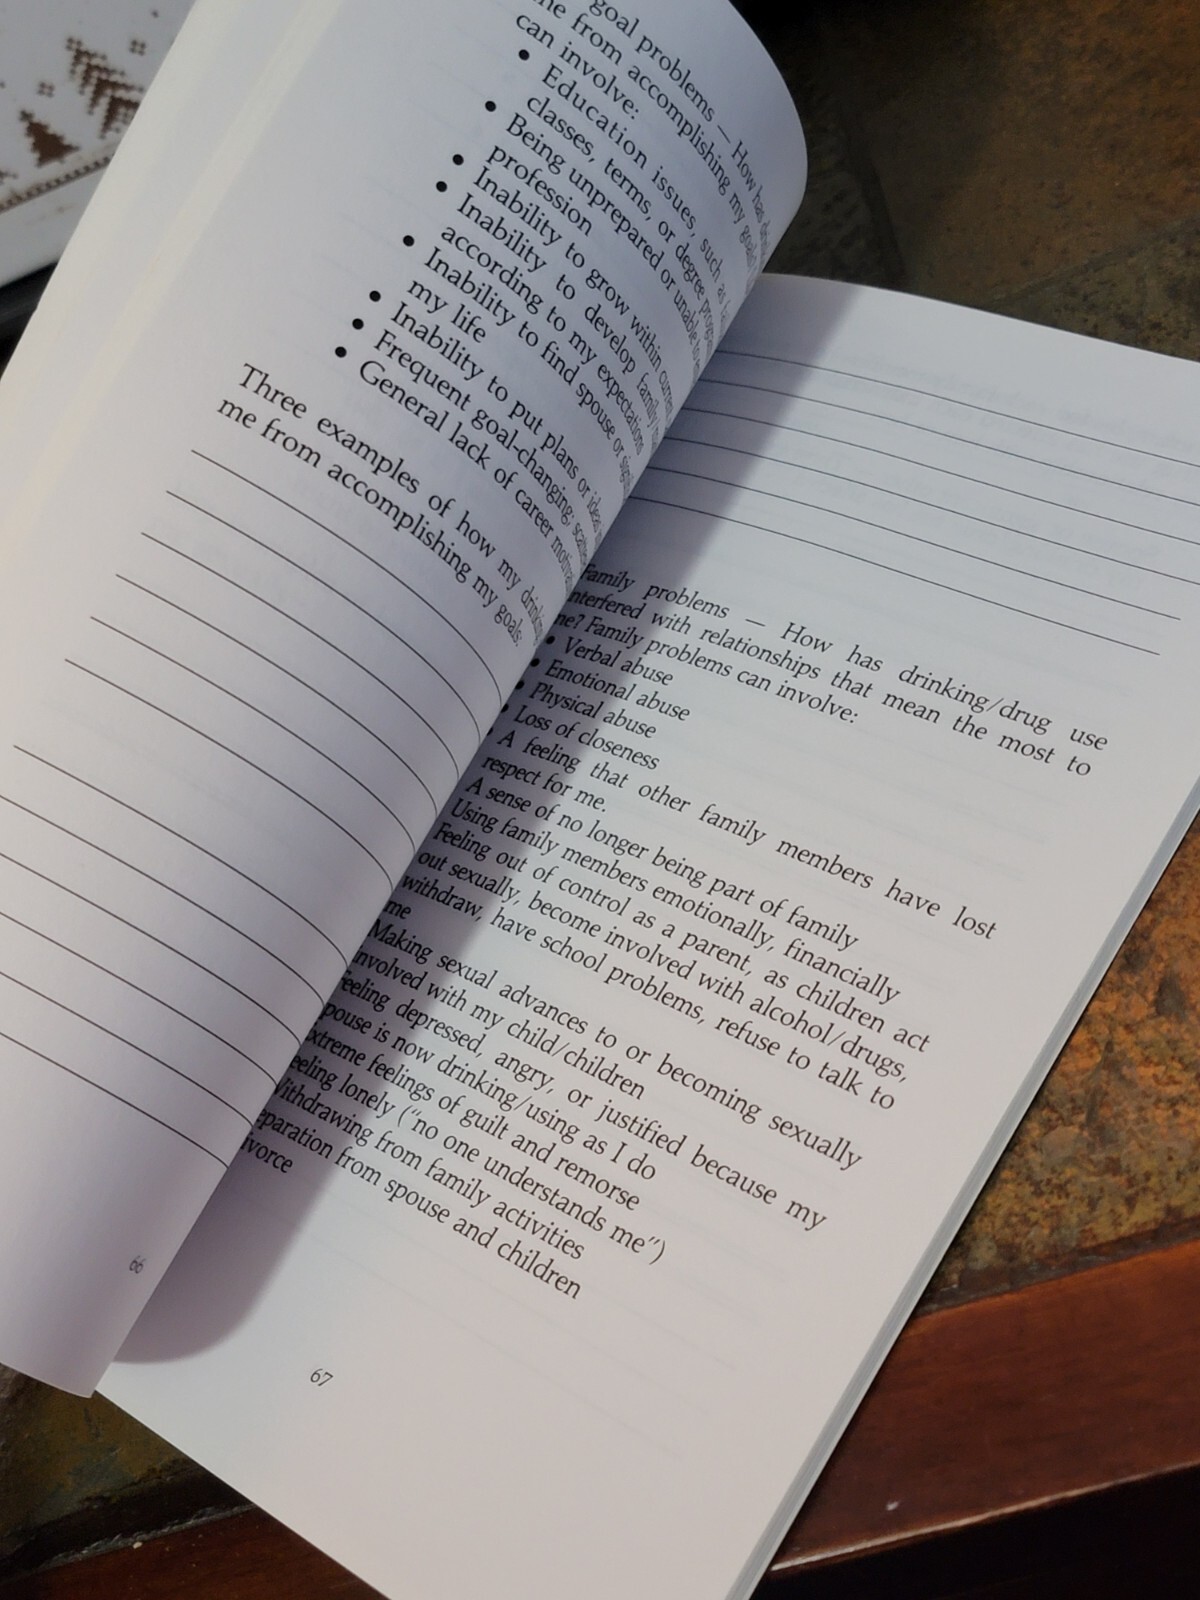 goal problems — How has
me from accomplishing my goals?
can involve:
• Education issues, such as
classes, terms, or degree
• Being unprepared or unable to
profession
• Inability to grow within current
• Inability to develop family
according to my expectations
• Inability to find spouse or
my life
• Inability to put plans or ideas
• Frequent goal-changing;
• General lack of career
Three examples of how my drinking
me from accomplishing my goals:
66
Family problems — How has drinking/drug use
interfered with relationships that mean the most to
me? Family problems can involve:
• Verbal abuse
• Emotional abuse
• Physical abuse
• Loss of closeness
• A feeling that other family members have lost
respect for me.
A sense of no longer being part of family
Using family members emotionally, financially
Feeling out of control as a parent, as children act
out sexually, become involved with alcohol/drugs,
withdraw, have school problems, refuse to talk to
me
Making sexual advances to or becoming sexually
involved with my child/children
eeling depressed, angry, or justified because my
pouse is now drinking/using as I do
xtreme feelings of guilt and remorse
eeling lonely ("no one understands me")
Withdrawing from family activities
eparation from spouse and children
ivorce
67